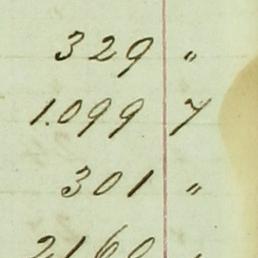 329 "
1.099 7
301 "
2160 "